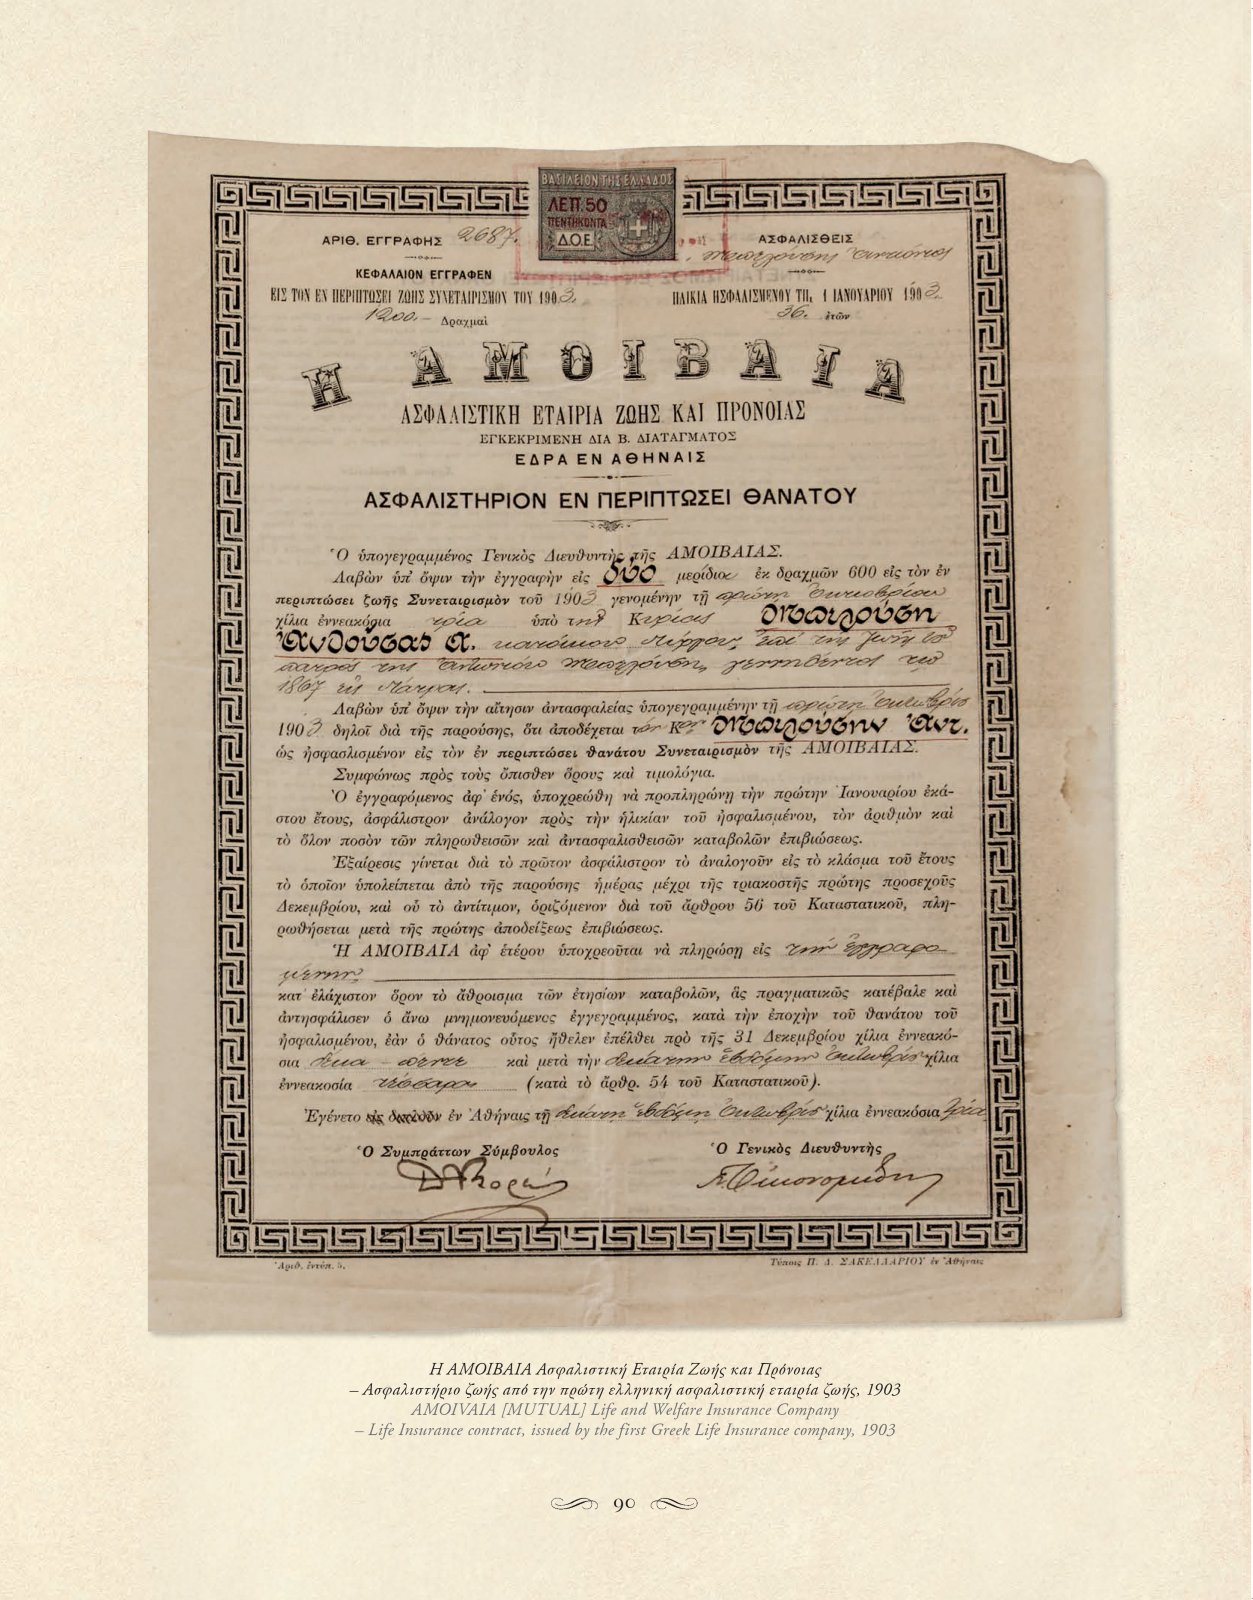 ΒΑΣΙΛΕΙΟΝ ΤΗΣ ΕΛΛΑΔΟΣ
ΛΕΠ. 50
ΠΕΝΤΗΚΟΝΤΑ
Δ.Ο.Ε.
ΑΡΙΘ. ΕΓΓΡΑΦΗΣ 2687.
ΑΣΦΑΛΙΣΘΕΙΣ
ΚΕΦΑΛΑΙΟΝ ΕΓΓΡΑΦΕΝ
ΕΙΣ ΤΟΝ ΕΝ ΠΕΡΙΠΤΩΣΕΙ ΖΩΗΣ ΣΥΝΕΤΑΙΡΙΣΜΟΝ ΤΟΥ 1903.
ΗΛΙΚΙΑ ΗΣΦΑΛΙΣΜΕΝΟΥ ΤΗ, 1 ΙΑΝΟΥΑΡΙΟΥ 1903.
1200.— Δραχμαὶ
36. ἐτῶν
Η ΑΜΟΙΒΑΙΑ
ΑΣΦΑΛΙΣΤΙΚΗ ΕΤΑΙΡΙΑ ΖΩΗΣ ΚΑΙ ΠΡΟΝΟΙΑΣ
ΕΓΚΕΚΡΙΜΕΝΗ ΔΙΑ Β. ΔΙΑΤΑΓΜΑΤΟΣ
ΕΔΡΑ ΕΝ ΑΘΗΝΑΙΣ
ΑΣΦΑΛΙΣΤΗΡΙΟΝ ΕΝ ΠΕΡΙΠΤΩΣΕΙ ΘΑΝΑΤΟΥ
Ὁ ὑπογεγραμμένος Γενικὸς Διευθυντὴς τῆς ΑΜΟΙΒΑΙΑΣ.
Λαβὼν ὑπ' ὄψιν τὴν ἐγγραφὴν εἰς δύο μερίδια ἐκ δραχμῶν 600 εἰς τὸν ἐν
περιπτώσει ζωῆς Συνεταιρισμὸν τοῦ 1903 γενομένην τῇ πρώτῃ Ὀκτωβρίου
χίλια ἐννεακόσια τρία ὑπὸ τῆς Κυρίας Μπιρούση
Ἀνθούσας Α. κατοίκου Πύργου, ἐπὶ τῆς ζωῆς τοῦ
πατρός της Ἀντωνίου γεννηθέντος τῷ
1867 εἰς Πάτρας.
Λαβὼν ὑπ' ὄψιν τὴν αἴτησιν ἀντασφαλείας ὑπογεγραμμένην τῇ πρώτῃ Ὀκτωβρίου
1903 δηλοῖ διὰ τῆς παρούσης, ὅτι ἀποδέχεται τὸν Κον Μπιρούσην Ἀντ.
ὡς ἠσφασλισμένον εἰς τὸν ἐν περιπτώσει θανάτου Συνεταιρισμὸν τῆς ΑΜΟΙΒΑΙΑΣ.
Συμφώνως πρὸς τοὺς ὄπισθεν ὅρους καὶ τιμολόγια.
Ὁ ἐγγραφόμενος ἀφ' ἑνός, ὑποχρεώθη νὰ προπληρώνῃ τὴν πρώτην Ἰανουαρίου ἑκά-
στου ἔτους, ἀσφάλιστρον ἀνάλογον πρὸς τὴν ἡλικίαν τοῦ ἠσφαλισμένου, τὸν ἀριθμὸν καὶ
τὸ ὅλον ποσὸν τῶν πληρωθεισῶν καὶ ἀντασφαλισθεισῶν καταβολῶν ἐπιβιώσεως.
Ἐξαίρεσις γίνεται διὰ τὸ πρῶτον ἀσφάλιστρον τὸ ἀναλογοῦν εἰς τὸ κλάσμα τοῦ ἔτους
τὸ ὁποῖον ὑπολείπεται ἀπὸ τῆς παρούσης ἡμέρας μέχρι τῆς τριακοστῆς πρώτης προσεχοῦς
Δεκεμβρίου, καὶ οὗ τὸ ἀντίτιμον, ὁριζόμενον διὰ τοῦ ἄρθρου 56 τοῦ Καταστατικοῦ, πλη-
ρωθήσεται μετὰ τῆς πρώτης ἀποδείξεως ἐπιβιώσεως.
Ἡ ΑΜΟΙΒΑΙΑ ἀφ' ἑτέρου ὑποχρεοῦται νὰ πληρώσῃ εἰς τὴν ἐγγραφο
μένην
κατ' ἐλάχιστον ὅρον τὸ ἄθροισμα τῶν ἐτησίων καταβολῶν, ἃς πραγματικῶς κατέβαλε καὶ
ἀντησφάλισεν ὁ ἄνω μνημονευόμενος ἐγγεγραμμένος, κατὰ τὴν ἐποχὴν τοῦ θανάτου τοῦ
ἠσφαλισμένου, ἐὰν ὁ θάνατος οὗτος ἤθελεν ἐπέλθει πρὸ τῆς 31 Δεκεμβρίου χίλια ἐννεακό-
σια δέκα-πέντε καὶ μετὰ τὴν δεκάτην ἑβδόμην Ὀκτωβρίου χίλια
ἐννεακοσία τέσσαρα (κατὰ τὸ ἄρθρ. 54 τοῦ Καταστατικοῦ).
Ἐγένετο εἰς διπλοῦν ἐν Ἀθήναις τῇ δεκάτῃ ἑβδόμῃ Ὀκτωβρίου χίλια ἐννεακόσια τρία
Ὁ Συμπράττων Σύμβουλος
Ὁ Γενικὸς Διευθυντὴς
Ἀριθ. ἐντύπ. 5.
Τύποις Π. Δ. ΣΑΚΕΛΛΑΡΙΟΥ ἐν Ἀθήναις
Η ΑΜΟΙΒΑΙΑ Ασφαλιστική Εταιρία Ζωής και Πρόνοιας
– Ασφαλιστήριο ζωής από την πρώτη ελληνική ασφαλιστική εταιρία ζωής, 1903
AMOIVAIA [MUTUAL] Life and Welfare Insurance Company
– Life Insurance contract, issued by the first Greek Life Insurance company, 1903
90